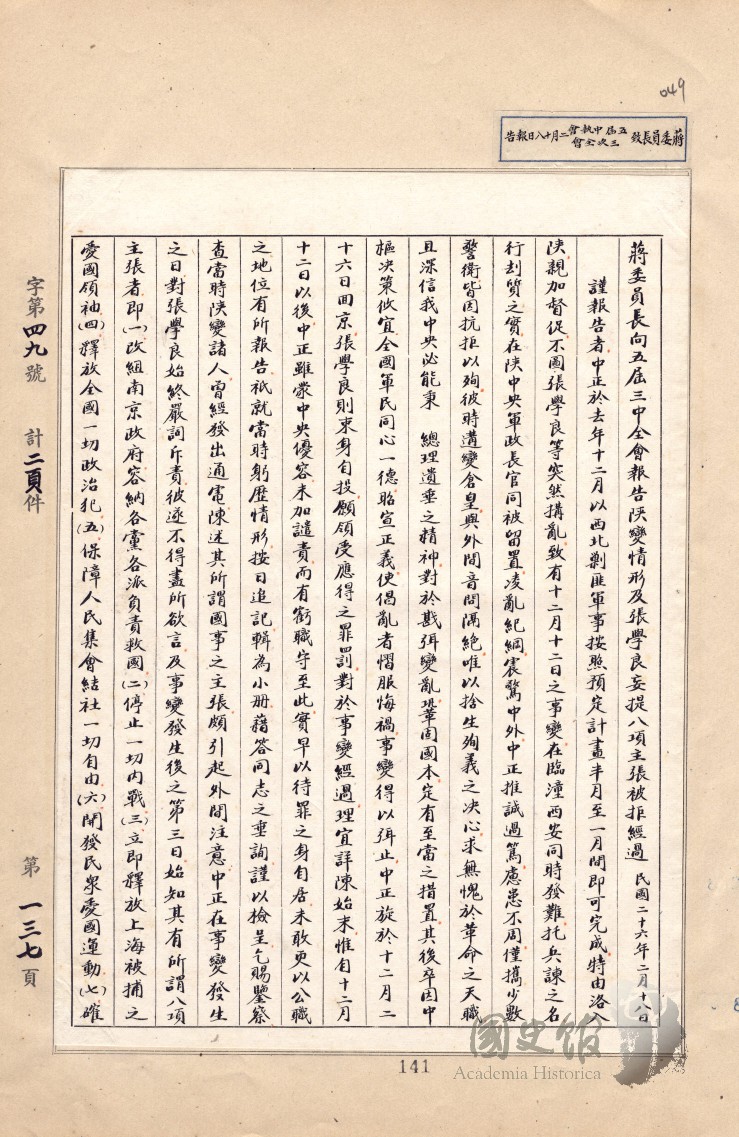 049
蔣委員長致五屆中執會三次全會二月十八日報告
蔣委員長向五屆三中全會報告陝變情形及張學良妄提八項主張被拒經過 民國二十六年二月十八日
謹報告者中正於去年十二月以西北剿匪軍事按照預定計畫半月至一月間即可完成特由洛入
陝親加督促不圖張學良等突然搆亂致有十二月十二日之事變在臨潼西安同時發難托兵諫之名
行刦質之實在陝中央軍政長官同被留置凌亂紀綱震驚中外中正推誠過篤慮患不周僅攜少數
警衛皆因抗拒以殉彼時遭變倉皇與外間音問隔絕唯以捨生殉義之決心求無愧於革命之天職
且深信我中央必能秉 總理遺垂之精神對於戡弭變亂鞏固國本定有至當之措置其後卒因中
樞决策攸宜全國軍民同心一德昭宣正義使倡亂者慴服悔禍事變得以弭止中正旋於十二月二
十六日回京張學良則束身自投願領受應得之罪罰對於事變經過理宜詳陳始末惟自十二月
十二日以後中正雖蒙中央優容未加譴責而有虧職守至此實早以待罪之身自居未敢更以公職
之地位有所報告祇就當時躬歷情形按日追記輯為小册藉答同志之垂詢謹以檢呈乞賜鑒察
查當時陝變諸人曾經發出通電陳述其所謂國事之主張頗引起外間注意中正在事變發生
之日對張學良始終嚴詞斥責彼遂不得盡所欲言及事變發生後之第三日始知其有所謂八項
主張者即(一)改組南京政府容納各黨各派負責救國(二)停止一切內戰(三)立即釋放上海被捕之
愛國領袖(四)釋放全國一切政治犯(五)保障人民集會結社一切自由(六)開發民眾愛國運動(七)確
字第四九號 計二頁件 第一三七頁
141
國史館
Academia Historica